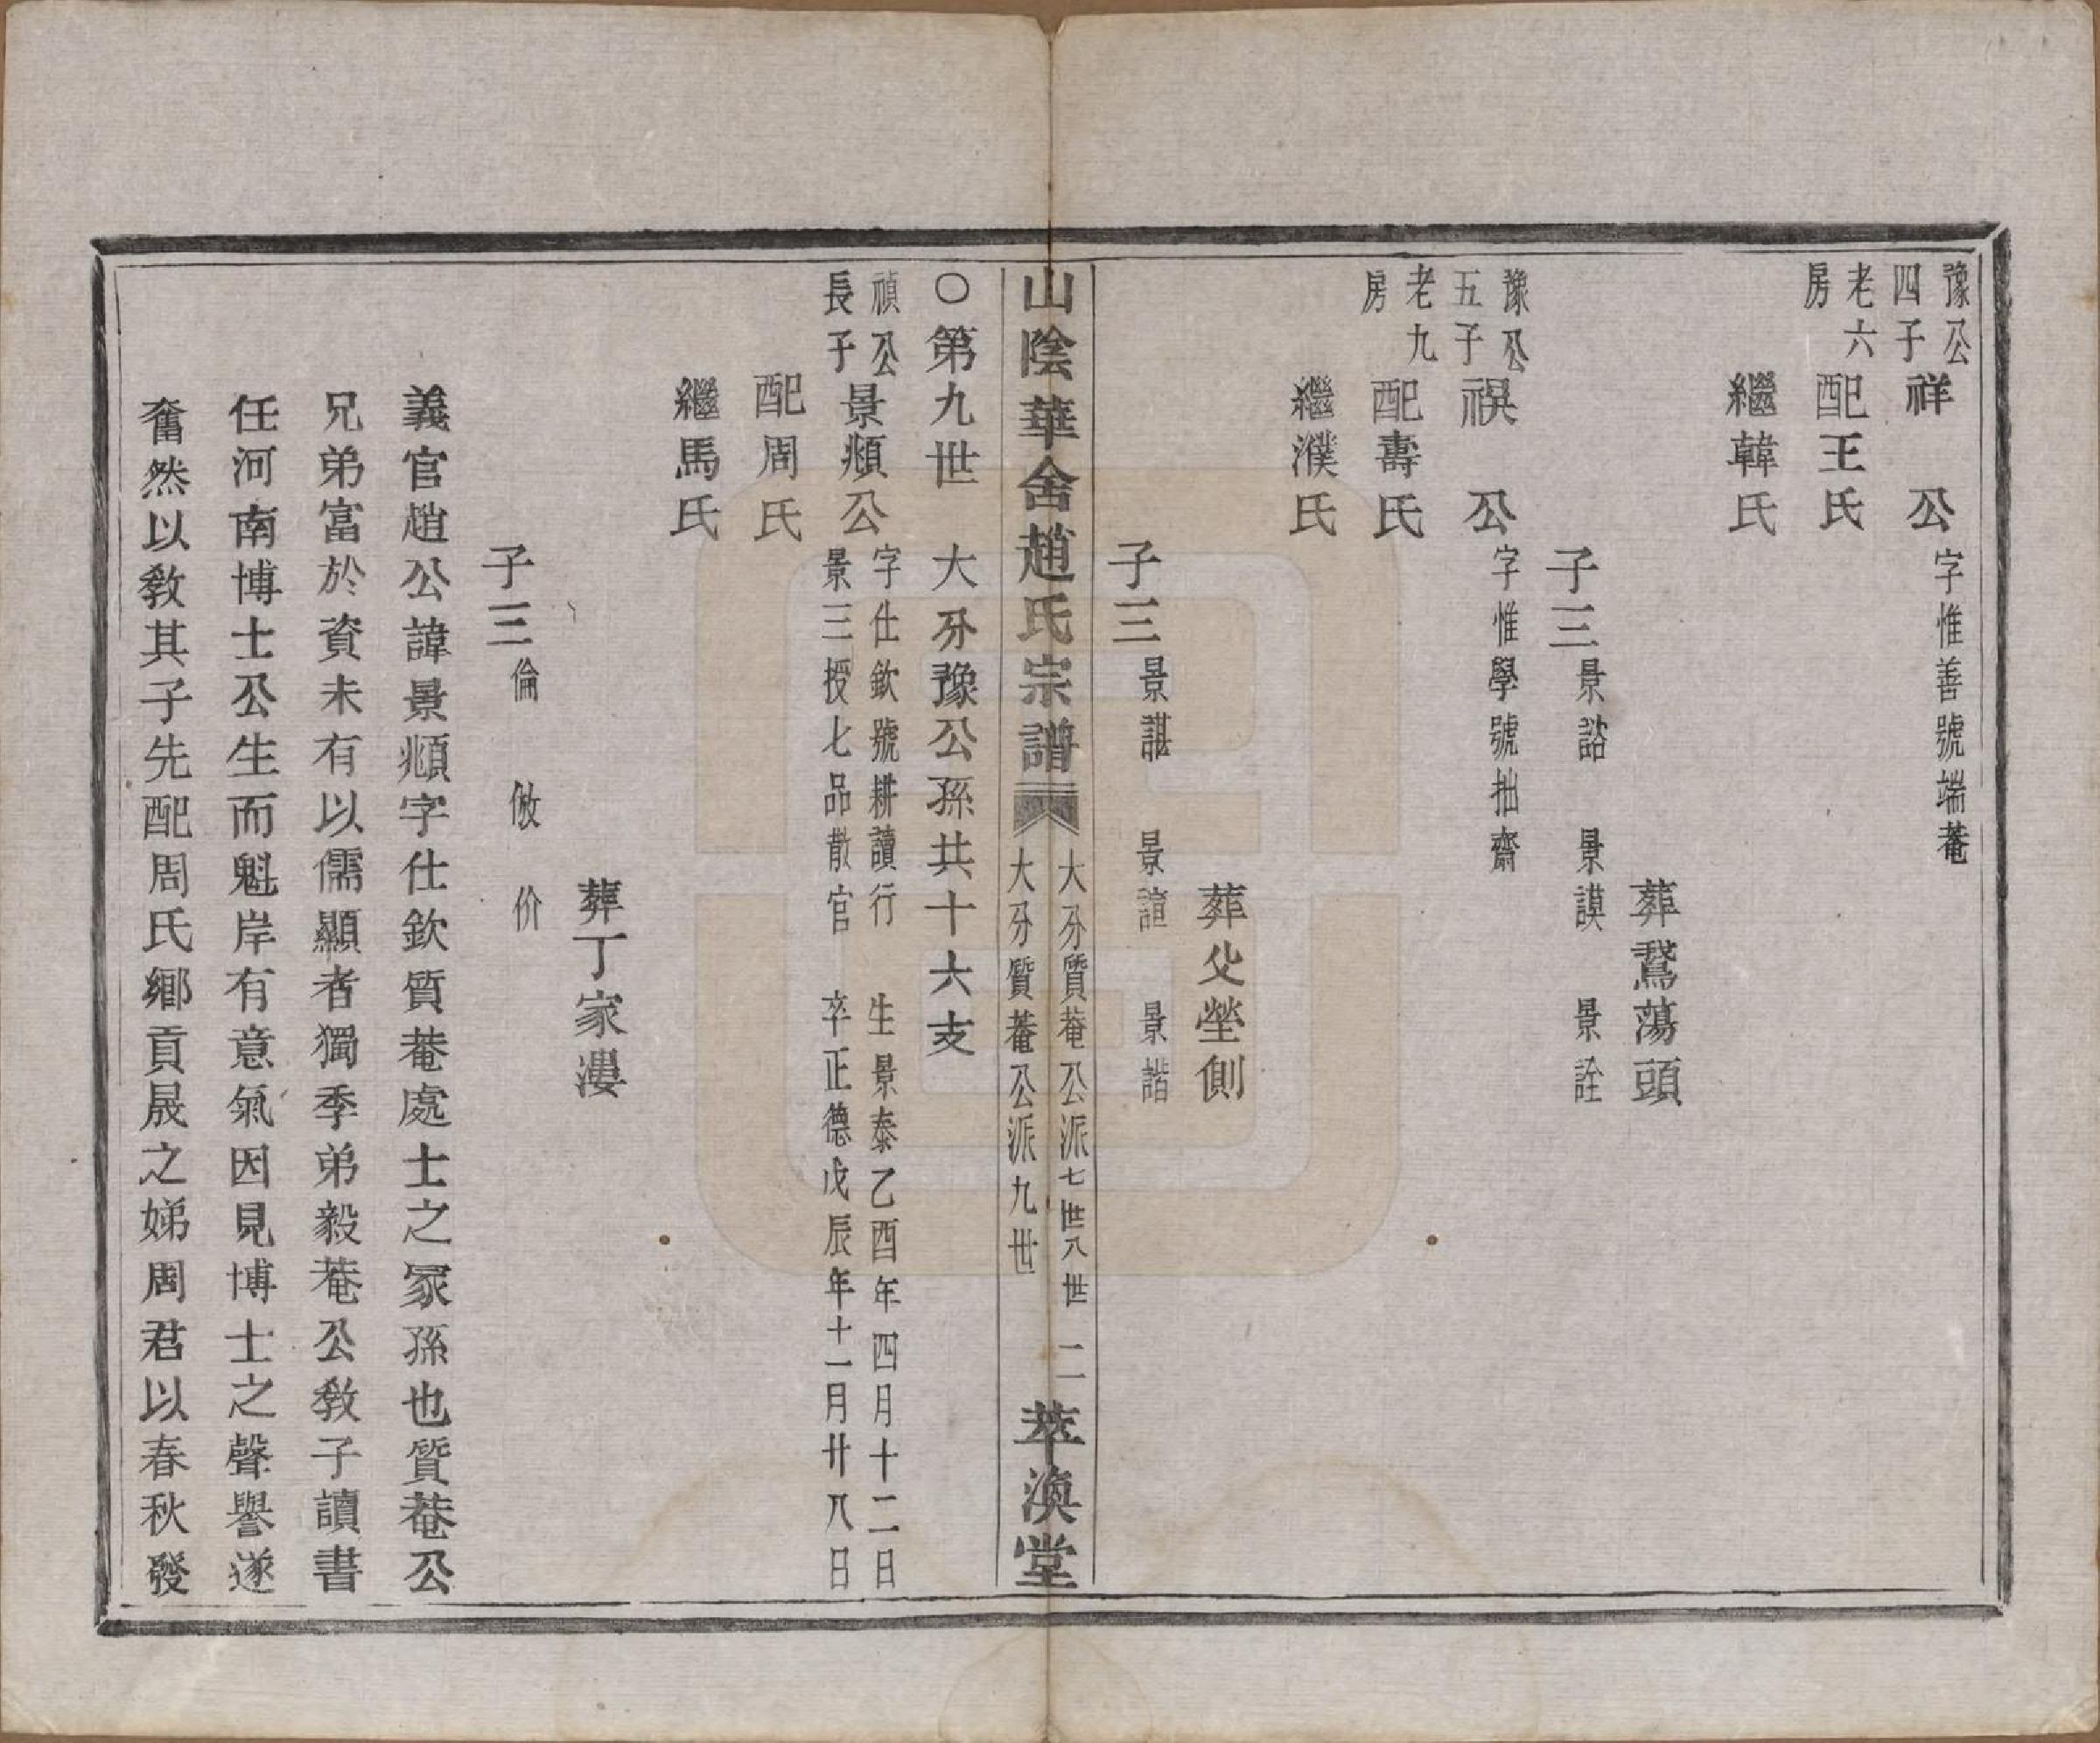 豫公
四子
老六
房
祥　公
字惟善號端菴
配王氏
繼韓氏
葬鵞蕩頭
子三
景詻　景謨　景詮
豫公
五子
老九
房
禩　公
字惟學號拙齋
配壽氏
繼濮氏
葬父塋側
子三
景諶　景諠　景諧
山陰華舍趙氏宗譜
大分質菴公派七世八世　二
大分質菴公派九世
萃渙堂
○第九世　大分豫公孫共十六支
禎公
長子
景頫公
字仕欽號耕讀行　生景泰乙酉年四月十二日
景三授七品散官　卒正德戊辰年十一月廿八日
配周氏
繼馬氏
葬丁家漊
子三
倫　倣　价
義官趙公諱景頫字仕欽質菴處士之冡孫也質菴公
兄弟富於資未有以儒顯者獨季弟毅菴公敎子讀書
任河南博士公生而魁岸有意氣因見博士之聲譽遂
奮然以敎其子先配周氏鄉貢晟之娣周君以春秋發